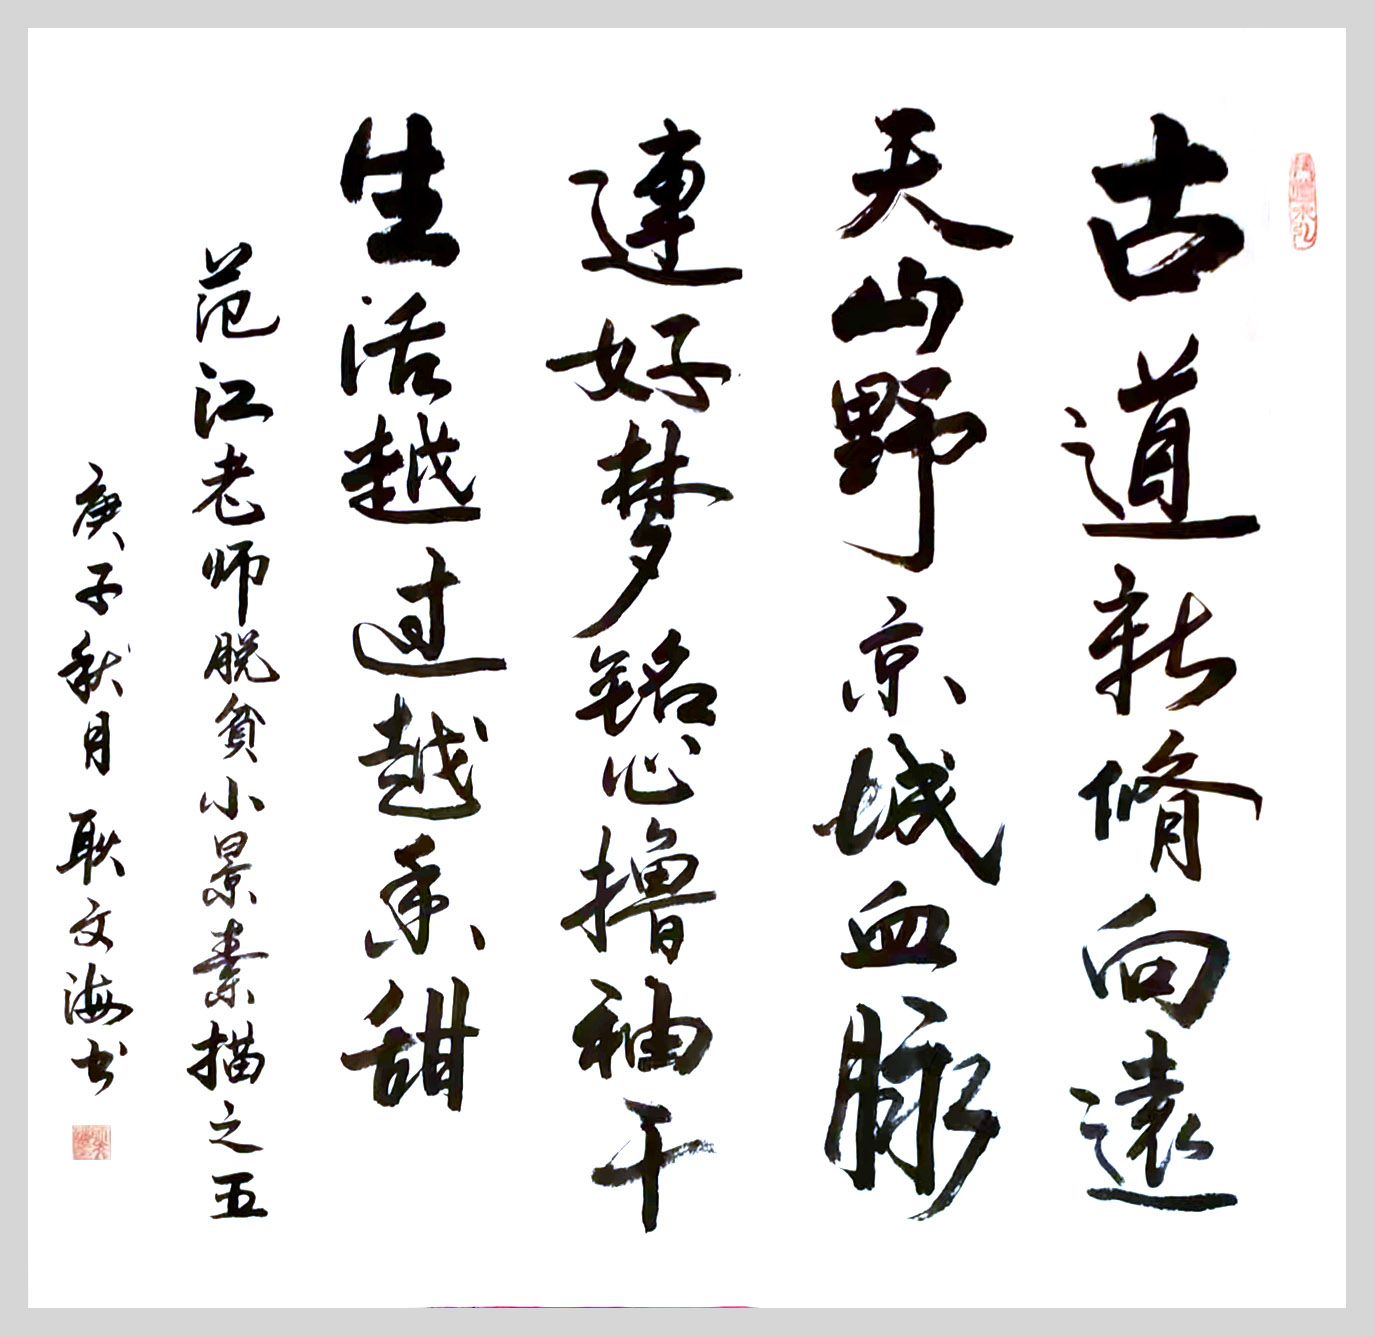 古道新脩向遠
天山野京城血脉
連好梦铭心撸袖干
生活越过越香甜
范江老师脱貧小景素描之五
庚子秋月耿文海书